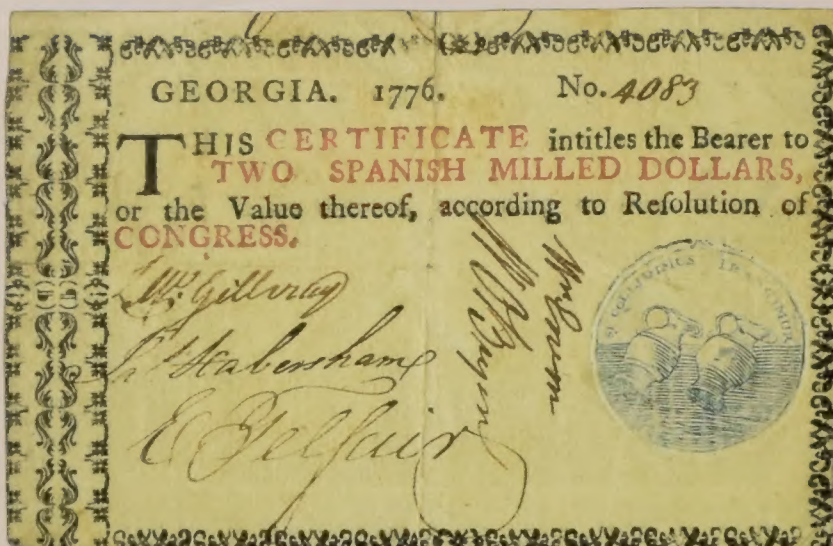 GEORGIA. 1776. No. 4083
THIS CERTIFICATE intitles the Bearer to
TWO SPANISH MILLED DOLLARS,
or the Value thereof, according to Reſolution of
CONGRESS.
Habersham
E Telfair
SI COLLIDIMUS FRANGIMUR